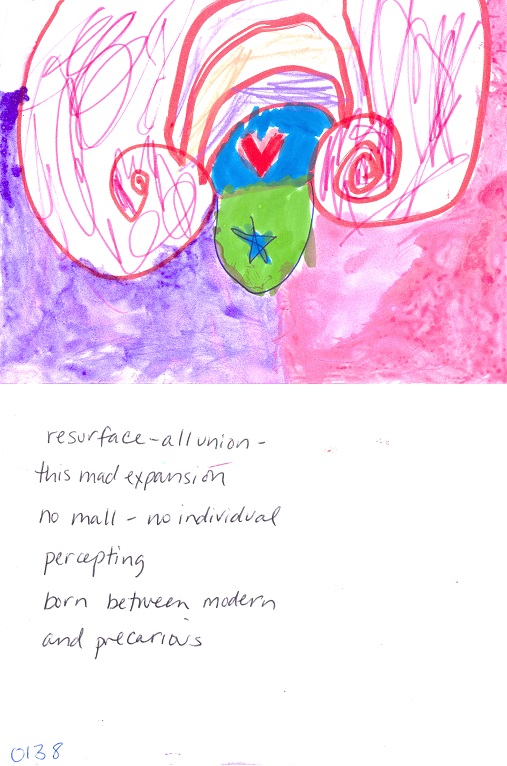 resurface-all union-
this mad expansion
no mall - no individual
percepting
born between modern
and precarious
0138